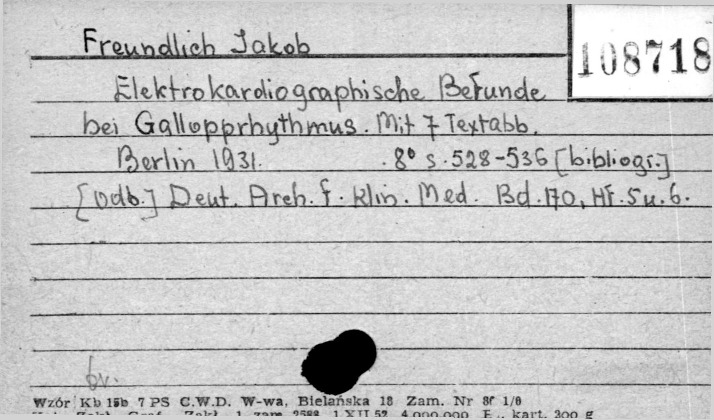 Freundlich Jakob
108718
Elektrokardiographische Befunde
bei Gallopprhythmus. Mit 7 Textabb.
Berlin 1931. . 8° s. 528-536 [bibliogr.]
[Odb.] Deut. Arch. f. klin. Med. Bd. 170, Hf. 5 u. 6.
bv.
Wzór Kb 15b 7 PS C.W.D. W-wa, Bielańska 18 Zam. Nr 8f 1/0
Zakł. Graf. Zakł. 1 zam. 2588 1.XII 52 4.000.000 kart. 300 g